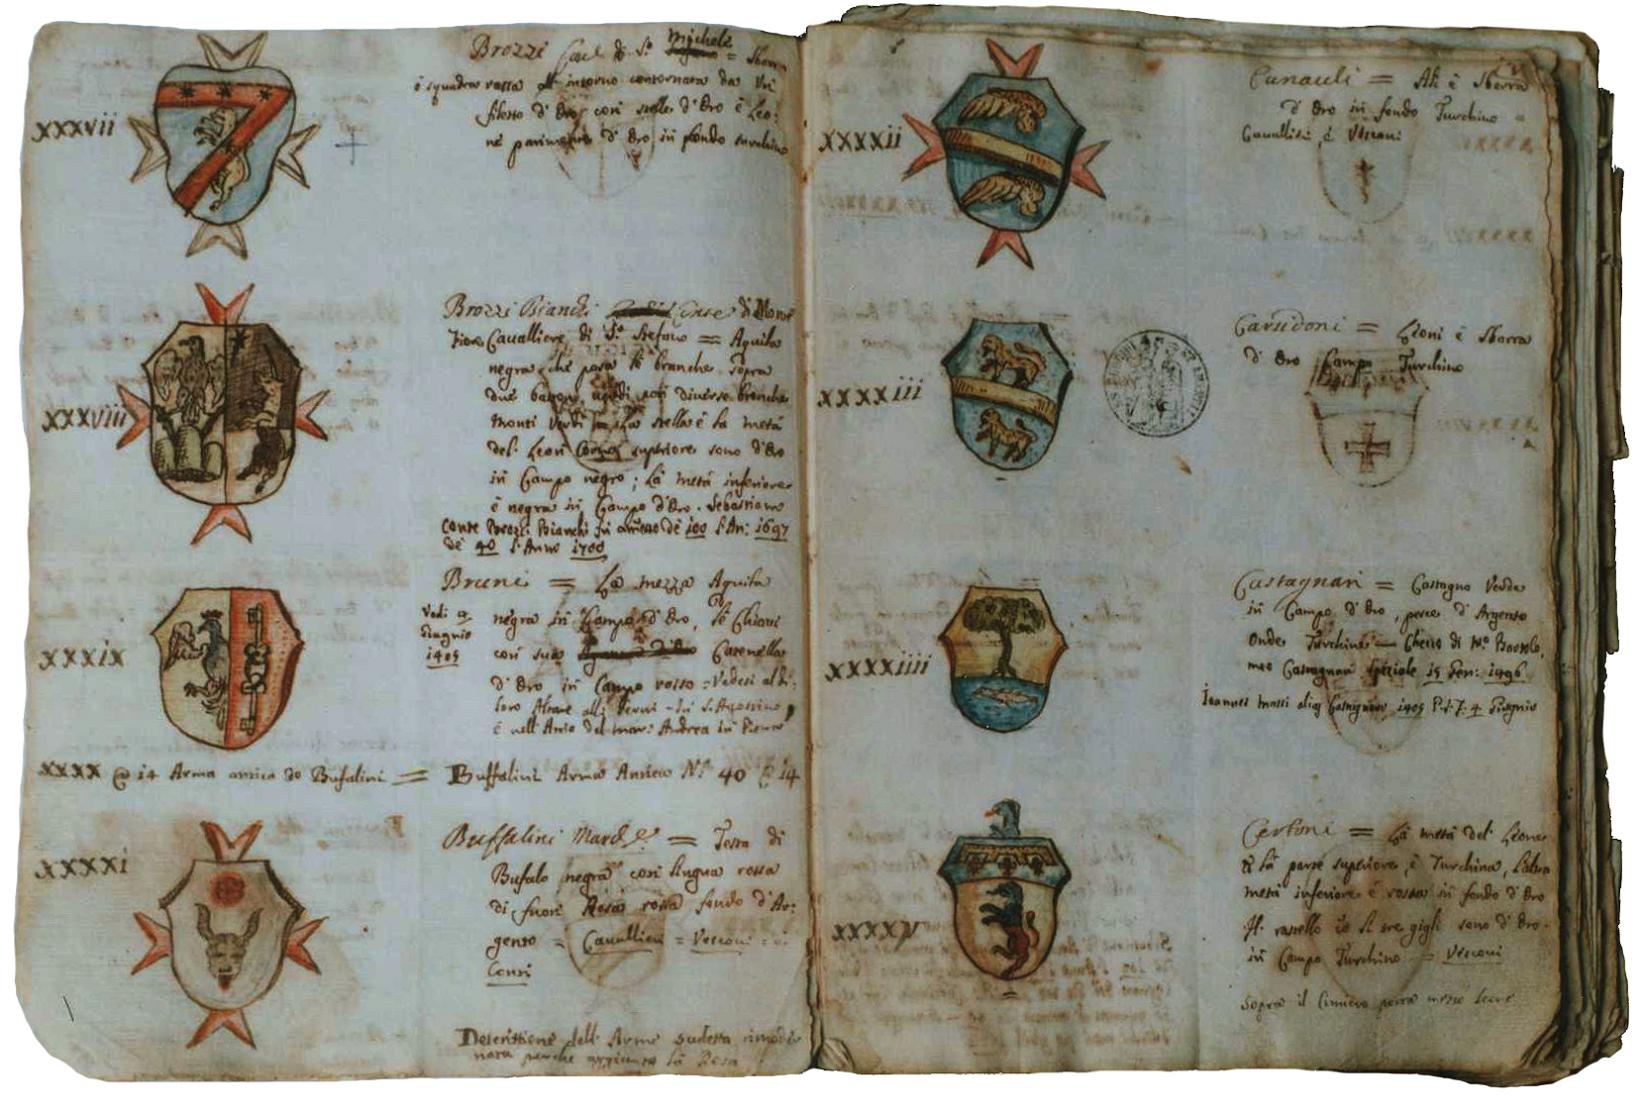 XXXvii
Brozzi Cav di S.º Michele = Sbarra
è squadra rossa all' intorno contornata da un
filetto d' Oro con stelle d' Oro è Leo:
ne parimente d' Oro in fondo turchino
XXXviii
Brozzi Bianchi Conte di Monte
Cavalliere di S.º Stefano = Aquila
negra che posa le branche sopra
due bastoni
monti Verdi La stella è la metà
del Leon superiore sono d'Oro
in Campo negro; La metà inferiore
è negra in Campo d'Oro. Sebastiano
Conte Brozzi Bianchi fu dè 100 l'An: 1697
dè 40 l'Anno 1700
XXXix
Bruni = La mezza Aquila
negra in Campo d' Oro, le Chiavi
con sua Catenella
d'Oro in Campo rosso = Vedesi al di
loro Altare in S. Agostino,
è nell' Atrio del Andrea in
Vedi a
Giugnio
1405
XXXX @ 14 Arma antica de Bufalini = Buffalini Arma Antica N.º 40 @ 14
XXXXi
Buffalini March.e = Testa di
Bufalo negra con lingua rossa
di fuori Rosa rossa fondo d'Ar:
gento = Cavallieri = Vescovi =
Conti
Descrittione dell' Arme sudetta
perche aggiunta la Rosa
XXXXii
Canauli = Ali è Sbarra
d' Oro in fondo Turchino =
Cavallieri, è Vescovi
XXXXiii
Carsidoni = Leoni è Sbarra
d' Oro Campo Turchino
XXXXiiii
Castagnari = Castagno Verde
in Campo d' Oro, pesce d' Argento
onde Turchine — Checco di M.º Bartolo,
meo Castagnari Speziale 15 Gen: 1496
Joannes Massi 1405 4 Giugnio
XXXXV
Certoni = La metà del Leone
è la parte superiore, è Turchina, l'altra
metà inferiore è rossa in fondo d' Oro
Il rastello è li tre gigli sono d' Oro
in Campo Turchino = Vescovi
Sopra il Cimiero porta mezzo